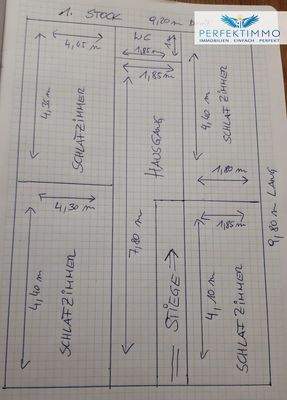 1. STOCK
9,20 m
PERFEKTIMMO
IMMOBILIEN · EINFACH · PERFEKT
4,45 m
WC
1,85 m
1,85 m
4,35 m
SCHLAFZIMMER
HAUSGANG
4,40 m
SCHLAFZIMMER
1,80 m
4,30 m
1,85 m
7,80 m
9,80 m LANG
4,40 m
SCHLAFZIMMER
STIEGE
4,10 m
SCHLAFZIMMER